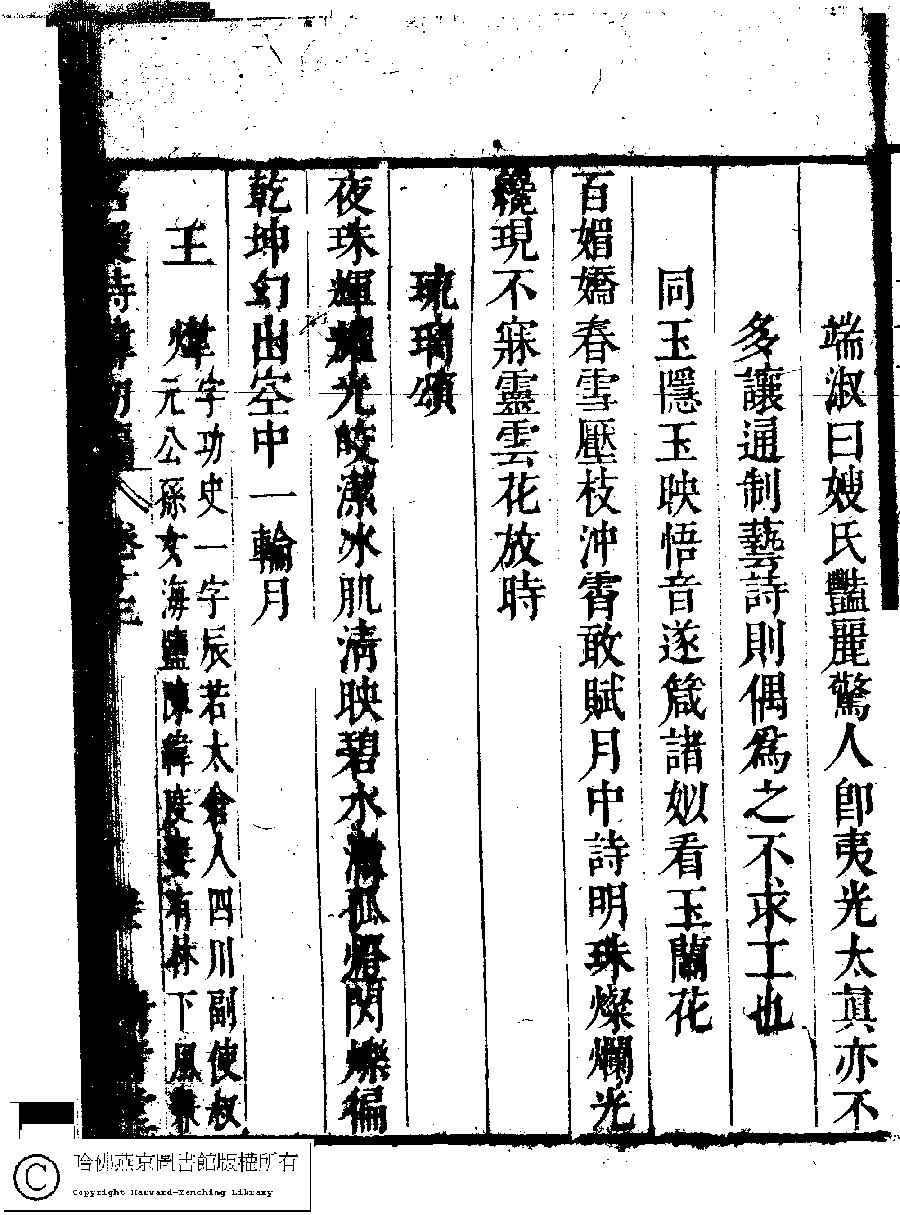 端淑曰嫂氏豔麗驚人卽夷光太眞亦不
多讓通制藝詩則偶爲之不求工也
同玉隱玉映悟音遂箴諸姒看玉蘭花
百媚嬌春雪壓枝沖霄敢賦月中詩明珠燦爛光
纔現不寐靈雲花放時
琉璃頌
夜珠輝耀光皎潔冰肌清映碧水澈孤燈閃爍徧
乾坤幻出空中一輪月
王煒字功史一字辰若太倉人四川副使叔
元公孫女海鹽陳緯度妻有林下風
詩緯初編 卷十三
哈佛燕京圖書館版權所有
Copyright Harvard-Yenching Library